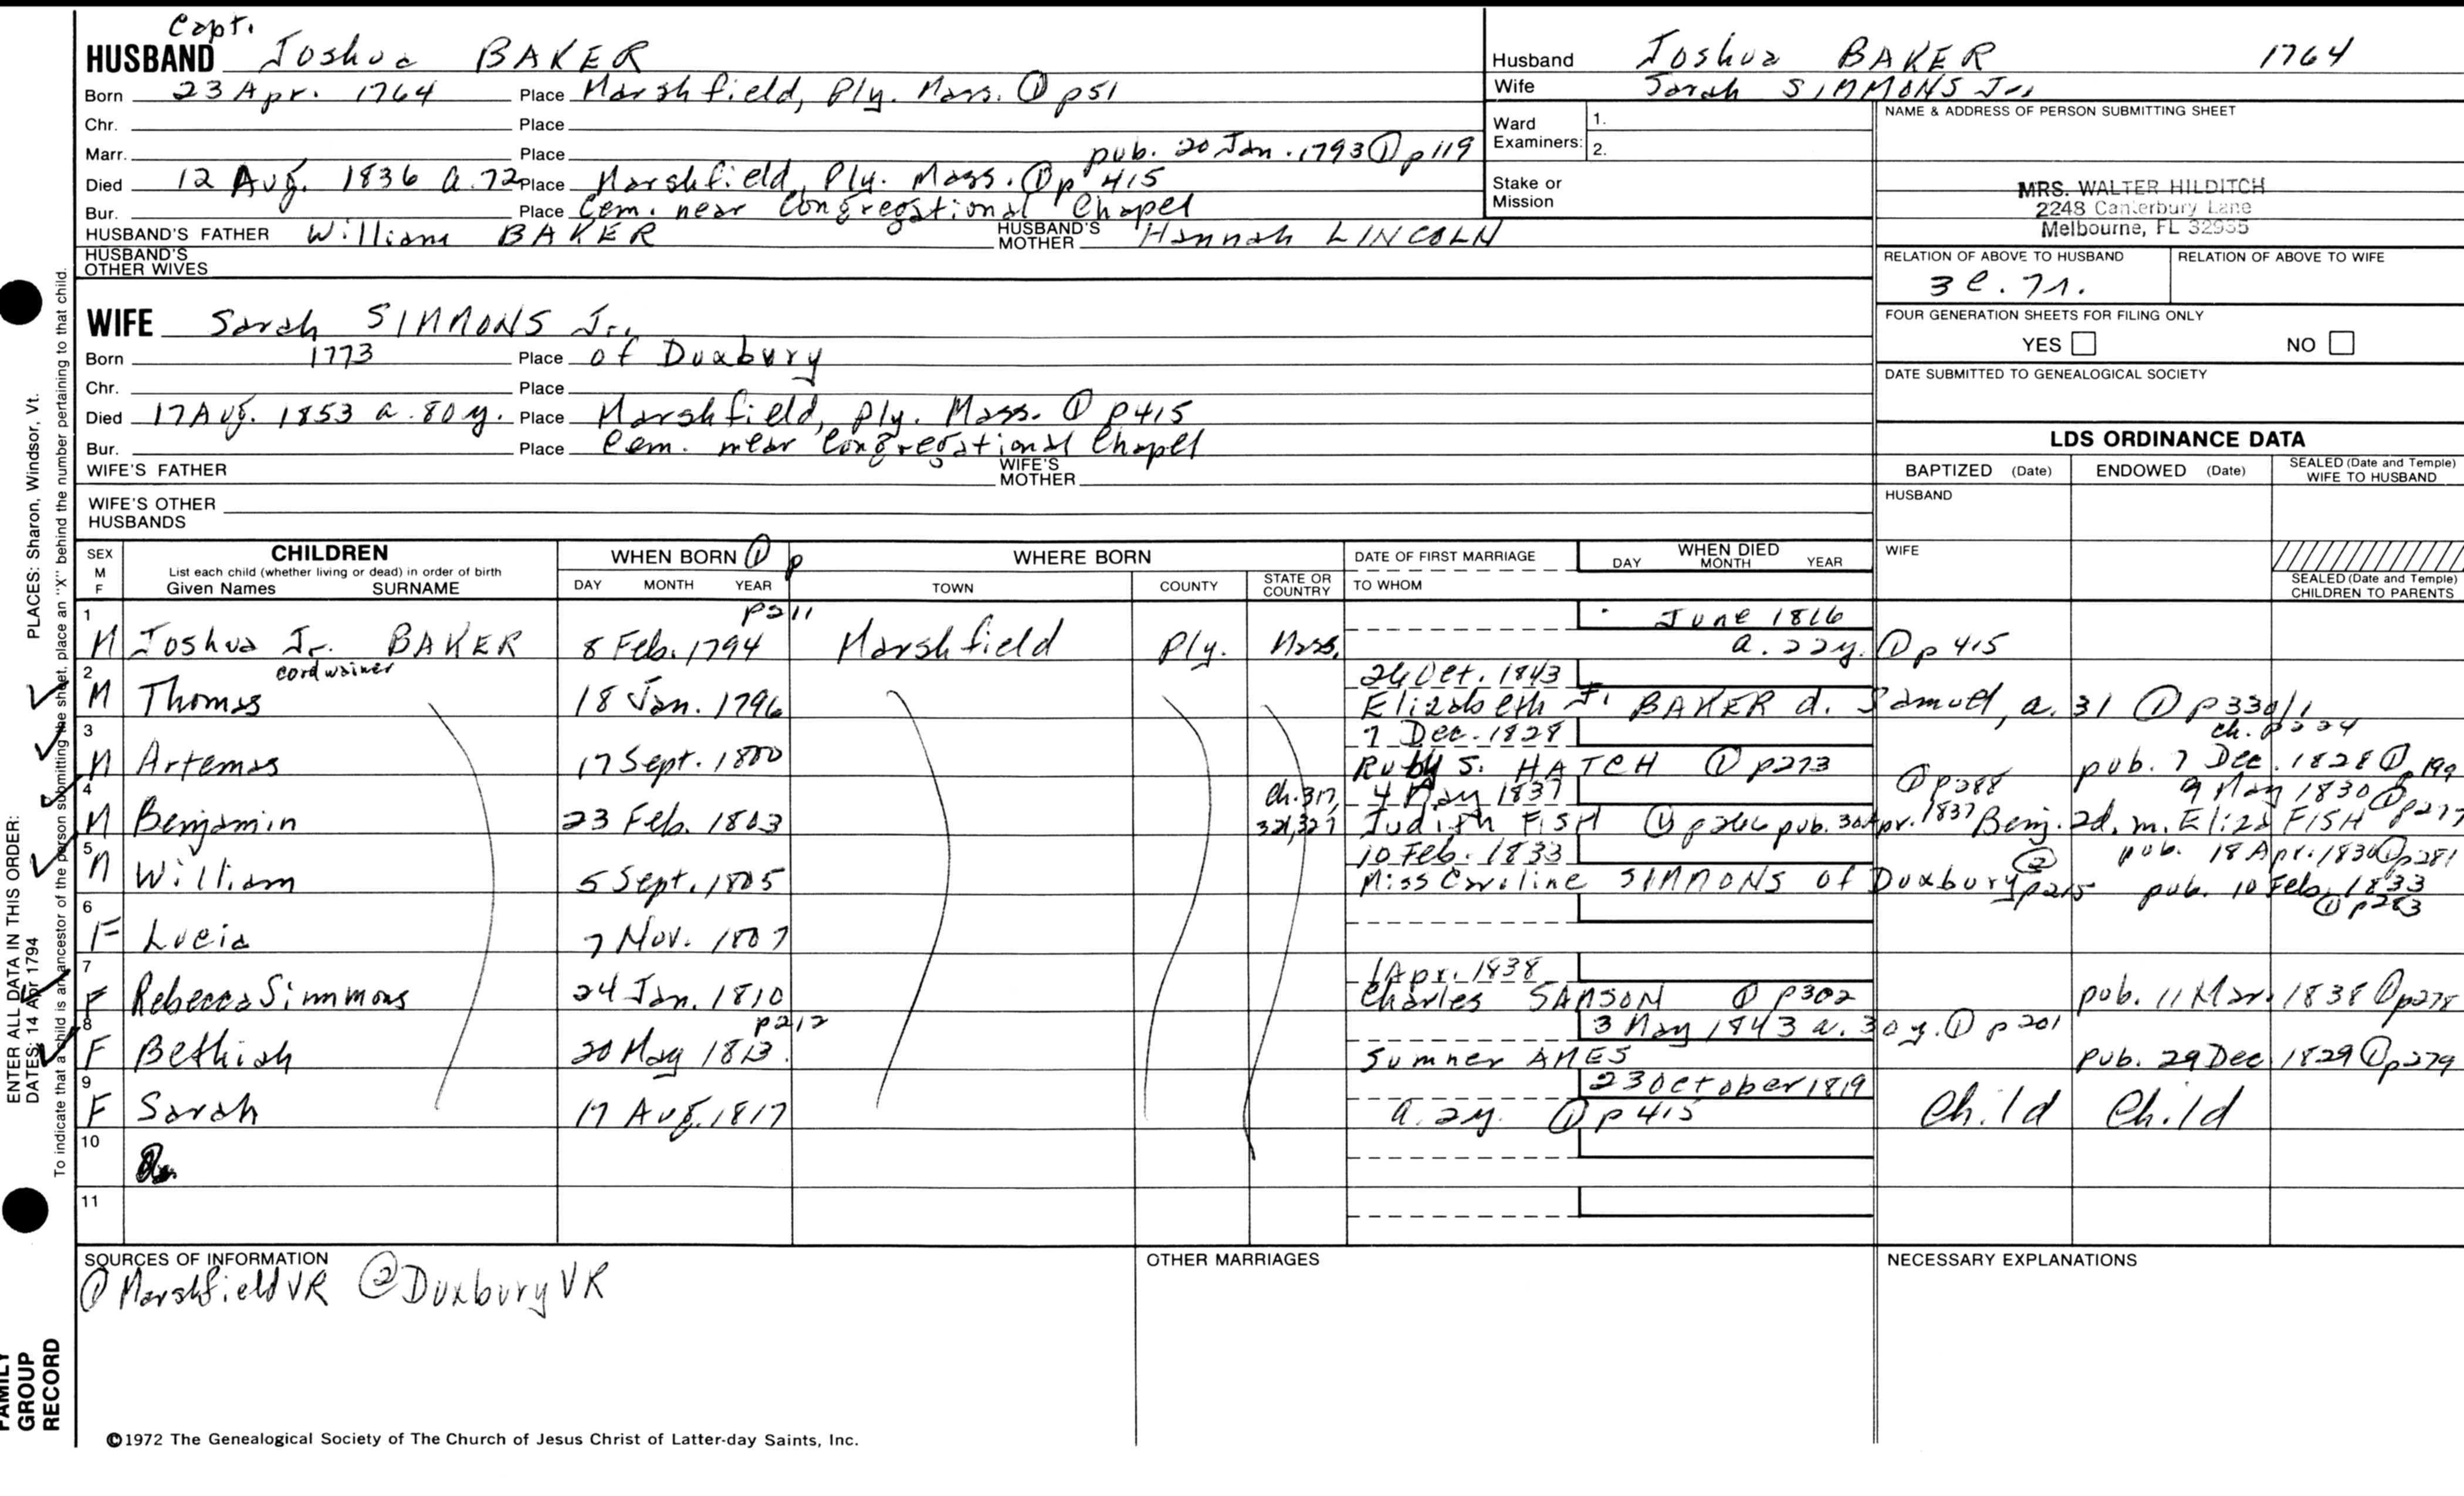 Capt.
HUSBAND Joshua BAKER
Born 23 Apr. 1764 Place Marshfield, Ply. Mass. ① p51
Chr. Place
Marr. Place pub. 20 Jan. 1793 ① p119
Died 12 Aug. 1836 a. 72 Place Marshfield, Ply. Mass. ① p 415
Bur. Place Cem. near Congregational Chapel
HUSBAND'S FATHER William BAKER HUSBAND'S MOTHER Hannah LINCOLN
HUSBAND'S OTHER WIVES
WIFE Sarah SIMMONS Jr.
Born 1773 Place of Duxbury
Chr. Place
Died 17 Aug. 1853 a. 80 y. Place Marshfield, Ply. Mass. ① p415
Bur. Place Cem. near Congregational Chapel
WIFE'S FATHER WIFE'S MOTHER
WIFE'S OTHER HUSBANDS
Husband Joshua BAKER 1764
Wife Sarah SIMMONS Jr.
Ward Examiners: 1.
2.
Stake or Mission
NAME & ADDRESS OF PERSON SUBMITTING SHEET
MRS. WALTER HILDITCH
2248 Canterbury Lane
Melbourne, FL 32935
RELATION OF ABOVE TO HUSBAND RELATION OF ABOVE TO WIFE
FOUR GENERATION SHEETS FOR FILING ONLY
YES NO
DATE SUBMITTED TO GENEALOGICAL SOCIETY
LDS ORDINANCE DATA
BAPTIZED (Date) ENDOWED (Date) SEALED (Date and Temple) WIFE TO HUSBAND
HUSBAND
WIFE
SEALED (Date and Temple) CHILDREN TO PARENTS
SEX M F CHILDREN WHEN BORN ① p WHERE BORN DATE OF FIRST MARRIAGE WHEN DIED
List each child (whether living or dead) in order of birth
Given Names SURNAME DAY MONTH YEAR TOWN COUNTY STATE OR COUNTRY TO WHOM DAY MONTH YEAR
1 p211 June 1816
M Joshua Jr. BAKER 8 Feb. 1794 Marshfield Ply. Mass. a. 22y. ① p 415
2 cordwainer 26 Oct. 1843
M Thomas 18 Jan. 1796 Elizabeth F. BAKER d. Samuel, a. 31 ① p330/1
3 7 Dec. 1828 ch. p224
M Artemas 17 Sept. 1800 Ruth S. HATCH ① p273 pub. 7 Dec. 1828 ① p199
4 Ch. 317, 4 May 1837 ① p288 9 May 1830 ① p277
M Benjamin 23 Feb. 1803 321, 327 Judith FISH ① p266 pub. 30 Apr. 1837 Benj. 2d. m. Eliza FISH
5 10 Feb. 1833 pub. 18 Apr. 1830 ① p281
M William 5 Sept. 1805 Miss Caroline SIMMONS of Duxbury ② p215 pub. 10 Feb. 1833 ① p283
6
F Lucia 7 Nov. 1807
7 1 Apr. 1838
F Rebecca Simmons 24 Jan. 1810 Charles SAMSON ① p302 pub. 11 Mar. 1838 ① p278
8 p212 3 May 1843 a. 30 y. ① p 201
F Bethiah 20 May 1813. Sumner AMES pub. 29 Dec 1829 ① p279
9 23 October 1819
F Sarah 17 Aug. 1817 a. 2y. ① p 415 Child Child
10
11
SOURCES OF INFORMATION OTHER MARRIAGES NECESSARY EXPLANATIONS
① Marshfield VR ② Duxbury VR
©1972 The Genealogical Society of The Church of Jesus Christ of Latter-day Saints, Inc.
ENTER ALL DATA IN THIS ORDER:
DATES: 14 Apr 1794 PLACES: Sharon, Windsor, Vt.
To indicate that a child is an ancestor of the person submitting the sheet, place an "X" behind the number pertaining to that child.
FAMILY GROUP RECORD